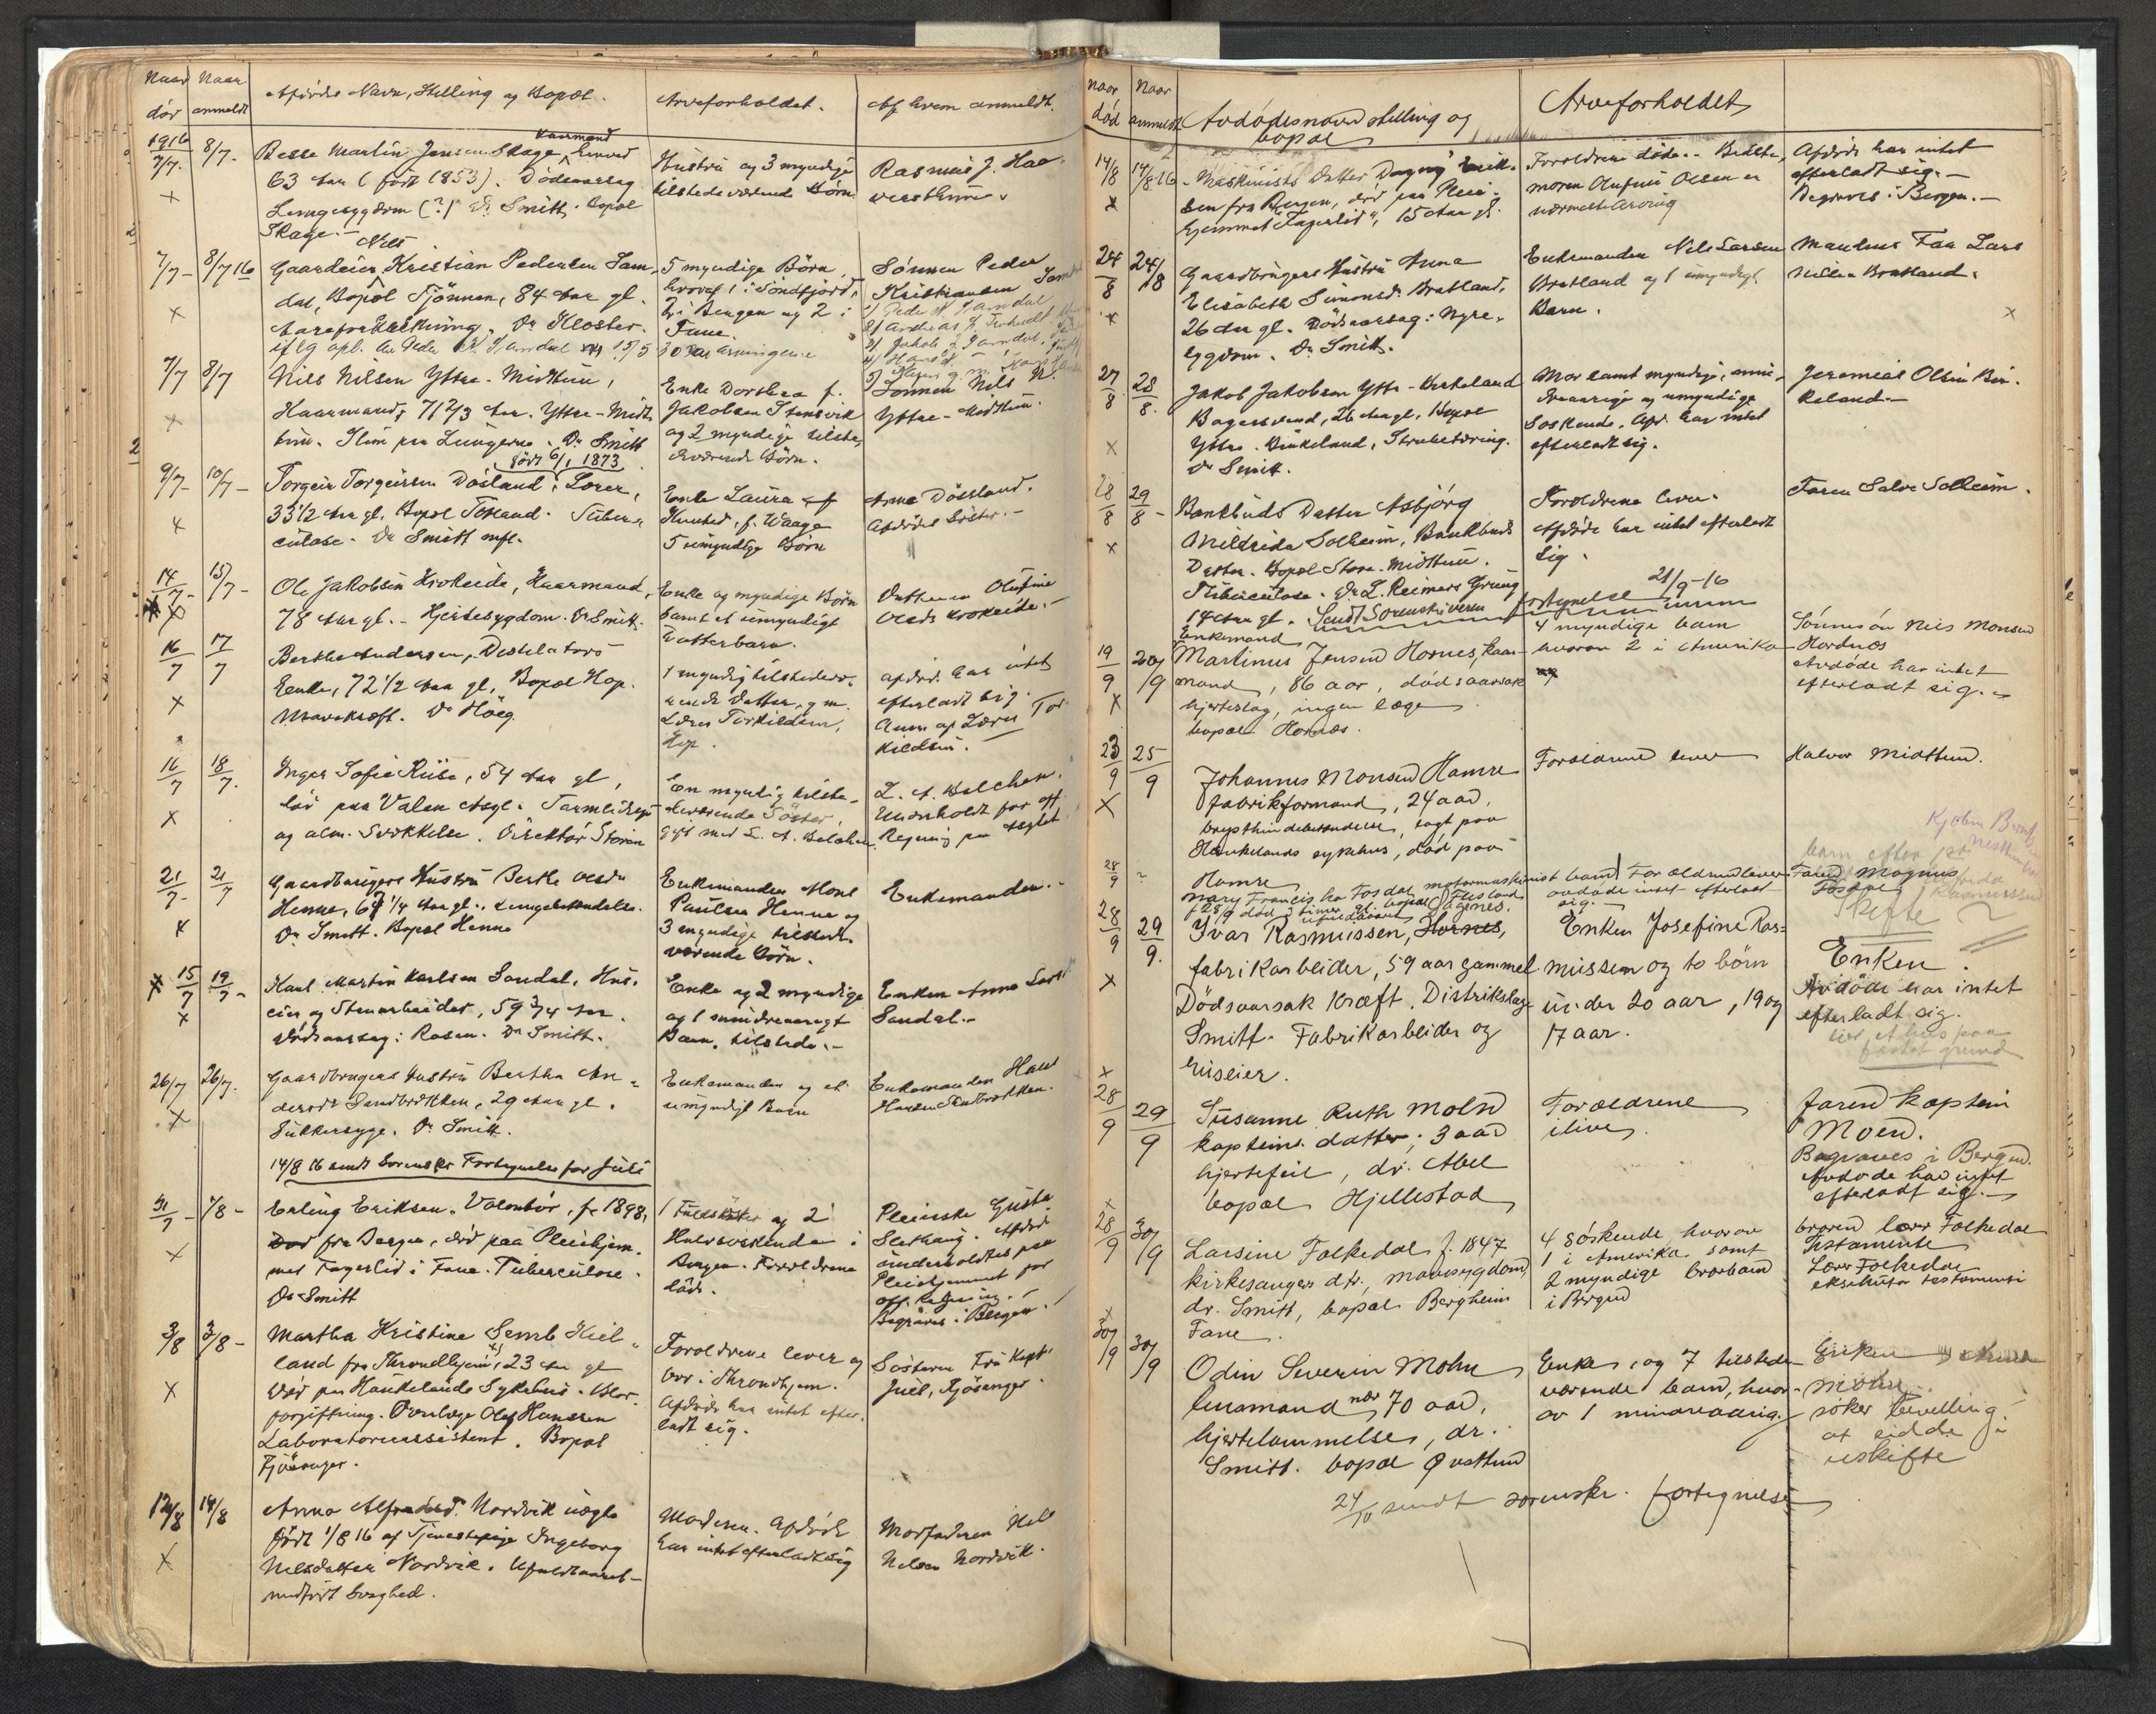 Naar
dör
Naar
anmeldt
Afdödes Navn, Stilling og Bopæl.
Arveforholdet.
Af hvem anmeldt.
1916
7/7.
8/7.
Besse Martin Jensen Skage, Kaarmand
63 Aar (født 1853). Dödsaarsag
Lungesygdom (?) Dr Smitt. Bopæl
Skage.
Hustru og 3 myndige
tilstedeværende Börn
Rasmus J. Haa-
7/7-
8/7 16
Gaardeier Nils Kristian Pedersen Sam-
dal, Bopæl Tjönnen, 84 Aar gl.
Aareforkalkning. Dr Kloster.
5 myndige Börn,
hvoraf 1 i Söndfjord,
2 i Bergen og 2 i
Fane
Sönnen Peder
Kristiansen
7/7
8/7
Nils Nilsen Yttre-Midttun,
Kaarmand, 71 2/3 Aar. Yttre-Midt-
tun. Slim paa Lungerne. Dr Smitt
Enke Dorthea f.
Jakobsen Stensvik
og 2 myndige tilste-
deværende Börn.
Sönnen Nils N.
Yttre-Midttun.
9/7-
10/7-
født 6/1 1873
Torgeir Torgeirsen Dösland, Lærer,
33 1/2 Aar gl. Bopæl Tösland. Tuber-
culose. Dr Smitt
Enke Laura
f. Waage
5 umyndige Börn
Anna Dössland.
Afdödes Söster.-
14/7-
15/7-
Ole Jakobsen Krokeide, Kaarmand,
78 Aar gl.- Hjertesygdom. Dr Smitt.
Enke og myndige Börn
samt et umyndigt
Datterbarn.
Datteren Olufine
Olsdr Krokeide.-
16/7
17/7
Berthe Andersen, Destilatørs
Enke, 72 1/2 Aar gl, Bopæl Hop.
Mavekræft. Dr Höeg.
1 myndig tilstedevæ-
rende Datter, g. m.
Lærer Torkildsen,
Hop.
Afdöde har intet
efterladt sig.
Anm. af Lærer Tor-
kildsen.
16/7
18/7.
Inger Sofie Riise, 54 Aar gl,
dör paa Valen Asyl. Tarmlidelse
og alm. Svækkelse. Direktör Storm
En myndig tilste-
deværende Söster,
gift med L. A. Balchen.
L. A. Balchen.
Underholdt for off.
Regning paa Asylet
21/7-
21/7
Gaardbrugers Hustru Berthe Olsdr
Henne, 67 1/4 Aar gl., Lungebetændelse.
Dr Smitt. Bopæl Henne
Enkemanden Mons
Paulsen Henne og
3 myndige tilstede-
værende Börn.
Enkemanden.-
15/7
19/7-
Karl Martin Karlsen Sandal, Hus-
eier og Stenarbeider, 59 3/4 Aar.
Dödsaarsag: Rosen. Dr Smitt.
Enke og 2 myndige
og 1 mindreaarigt
Barn, tilstede.-
Enken Anna
Sandal.-
26/7
26/7.
Gaardbrugers Hustru Bertha An-
dersdr Sandbrekken, 29 Aar gl.
Sukkersyge. Dr Smitt.
Enkemanden og et
umyndigt Barn
Enkemanden Hans
Hansen
14/8 16 sendt Sorenskr Fortegnelse for Juli
31/7-
1/8-
Erling Eriksen, Volontör, f. 1898,
fra Bergen, död paa Pleiehjem-
met Fagerlid i Fane. Tuberculose.
Dr Smitt
1 og 2
Halvsöskende i
Bergen. Forældrene
döde.
Pleierske Gusta
Slethaug. Afdöde
underholdtes paa
Pleiehjemmet for
off. Regning.
Begraves i Bergen.
3/8
3/8-
Martha Kristine Semb Kiel-
land fra Throndhjem, 23 Aar gl
Död paa Haukelands Sykehus. Blod-
forgiftning. Overlæge Olaf Hanssen
Laboratorieassistent. Bopæl
Fjösanger.
Forældrene lever og
bor i Throndhjem.
Afdöde har intet efter-
ladt sig.
Sösteren Fru Kapt.
Juel, Fjösanger.
12/8
14/8
Anna Alfredsd. Nordvik uægte
født 1/8 16 af Tjenestepige Ingeborg
Nilsdatter Nordvik. Ufuldbaaret-
medfödt Svaghed.
Moderen. Afdöde
har intet efterladt sig
Morfaderen Nils
Nilsen Nordvik.
Naar
död
Naar
anmeldt
Avdödes navn stilling og
bopæl
Arveforholdet
14/8
14/8 16
Maskinists Datter Dagny Erik-
sen fra Bergen, död paa Pleie-
hjemmet "Fagerlid", 15 Aar gl.
Forældrene döde.- Bedste-
moren Olufine Olsen er
nærmeste Arving
Afdöde har intet
efterladt sig.-
Begraves i Bergen.-
24/8
24/8
Gaardbrugers Hustru Anna
Elisabeth Simonsd. Bratland,
26 Aar gl. Dödsaarsag: Nyre-
sygdom. Dr Smitt.
Enkemanden Nils Larsen
Bratland og 1 umyndigt
Barn.
Nilsen Bratland.
27/8
28/8.
Jakob Jakobsen Yttre-Birkeland
Bagersvend, 26 Aar gl, Bopæl
Yttre-Birkeland, Strubetæring.
Dr Smitt.
Mor samt myndige, min-
dreaarige og umyndige
Söskende. Afd. har intet
efterladt sig.
Jeremias Olsen Bir-
keland.-
28/8
29/8-
Bankbuds Datter Asbjörg
Mildrida Solheim, Bankbuds
Datter. Bopæl Store-Midttun.
Tuberculose. Dr L. Reimers Grung
Forældrene lever.
Afdöde har intet efterladt
sig.
Faren Salve Solheim.
Sendt Sorenskriveren fortegnelse 21/9-16
19/9
20/9
Enkemand
Martinus Jensen Hornes, kaar-
mand, 86 aar, dödsaarsak
hjerteslag, ingen læge
bopæl Hornæs.
4 myndige barn
hvorav 2 i Amerika
Sönnesön Nils Monsen
Hordnæs
Avdöde har intet
efterladt sig.
23/9
25/9
Johannes Monsen Hamre
fabrikformand, 24 aar,
brysthindebetændelse, lagt paa
Haukelands sykehus, död paa
Hamre
Forældrene lever
Halvor Midttun.
28/9
Mary Francis Fosdal motormaskinist barn
f 28/9 död 3 timer gl.
Forældrene lever
avdöde intet efterladt
sig.-
Faren Magnus
Fosdal
28/9
29/9.
Ivar Rasmussen, Hornes,
fabrikarbeider, 59 aar gammel
Dödsaarsak Kræft. Distriktslæge
Smitt. Fabrikarbeider og
huseier.
Enken Josefine Ras-
mussen og to börn
under 20 aar, 19 og
17 aar.
Skifte
Enken.
Avdöde har intet
efterladt sig.
et hus paa
festet grund
28/9
29/9
Susanne Ruth Moen
kapteins datter, 3 aar
hjertefeil, dr. Abel
bopæl Hjellestad
Forældrene
ilive
faren kaptein
Moen.
Begraves i Bergen.
Avdöde har intet
efterladt sig.
28/9
30/9
Larsine Folkedal f. 1847
kirkesangers dtr, mavesygdom,
dr. Smitt, bopæl Bergheim
Fane.
4 söskende, hvorav
1 i Amerika samt
2 myndige brorbarn
i Bergen
broren lærer Folkedal
Testamente
Lærer Folkedal
eksekutor testamenti
30/9
30/9
Odin Severin Mohn
lensmand nær 70 aar,
hjertelammelse, dr.
Smitt. bopæl Övsttun
Enke, og 7 tilstede-
værende barn, hvor-
av 1 mindreaarig.
Enken
Mohn
söker bevilling
at sidde i
uskifte
24/10 sendt sorenskr. fortegnelse